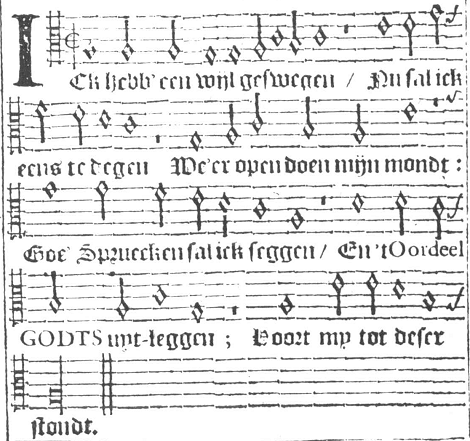 ICk hebb' een wijl geswegen / Nu sal ick
eens te degen We'er open doen mijn mondt :
Goe' Spruecken sal ick seggen / En 't Oordeel
GODTS uyt-leggen ; Voort my tot deser
stondt.